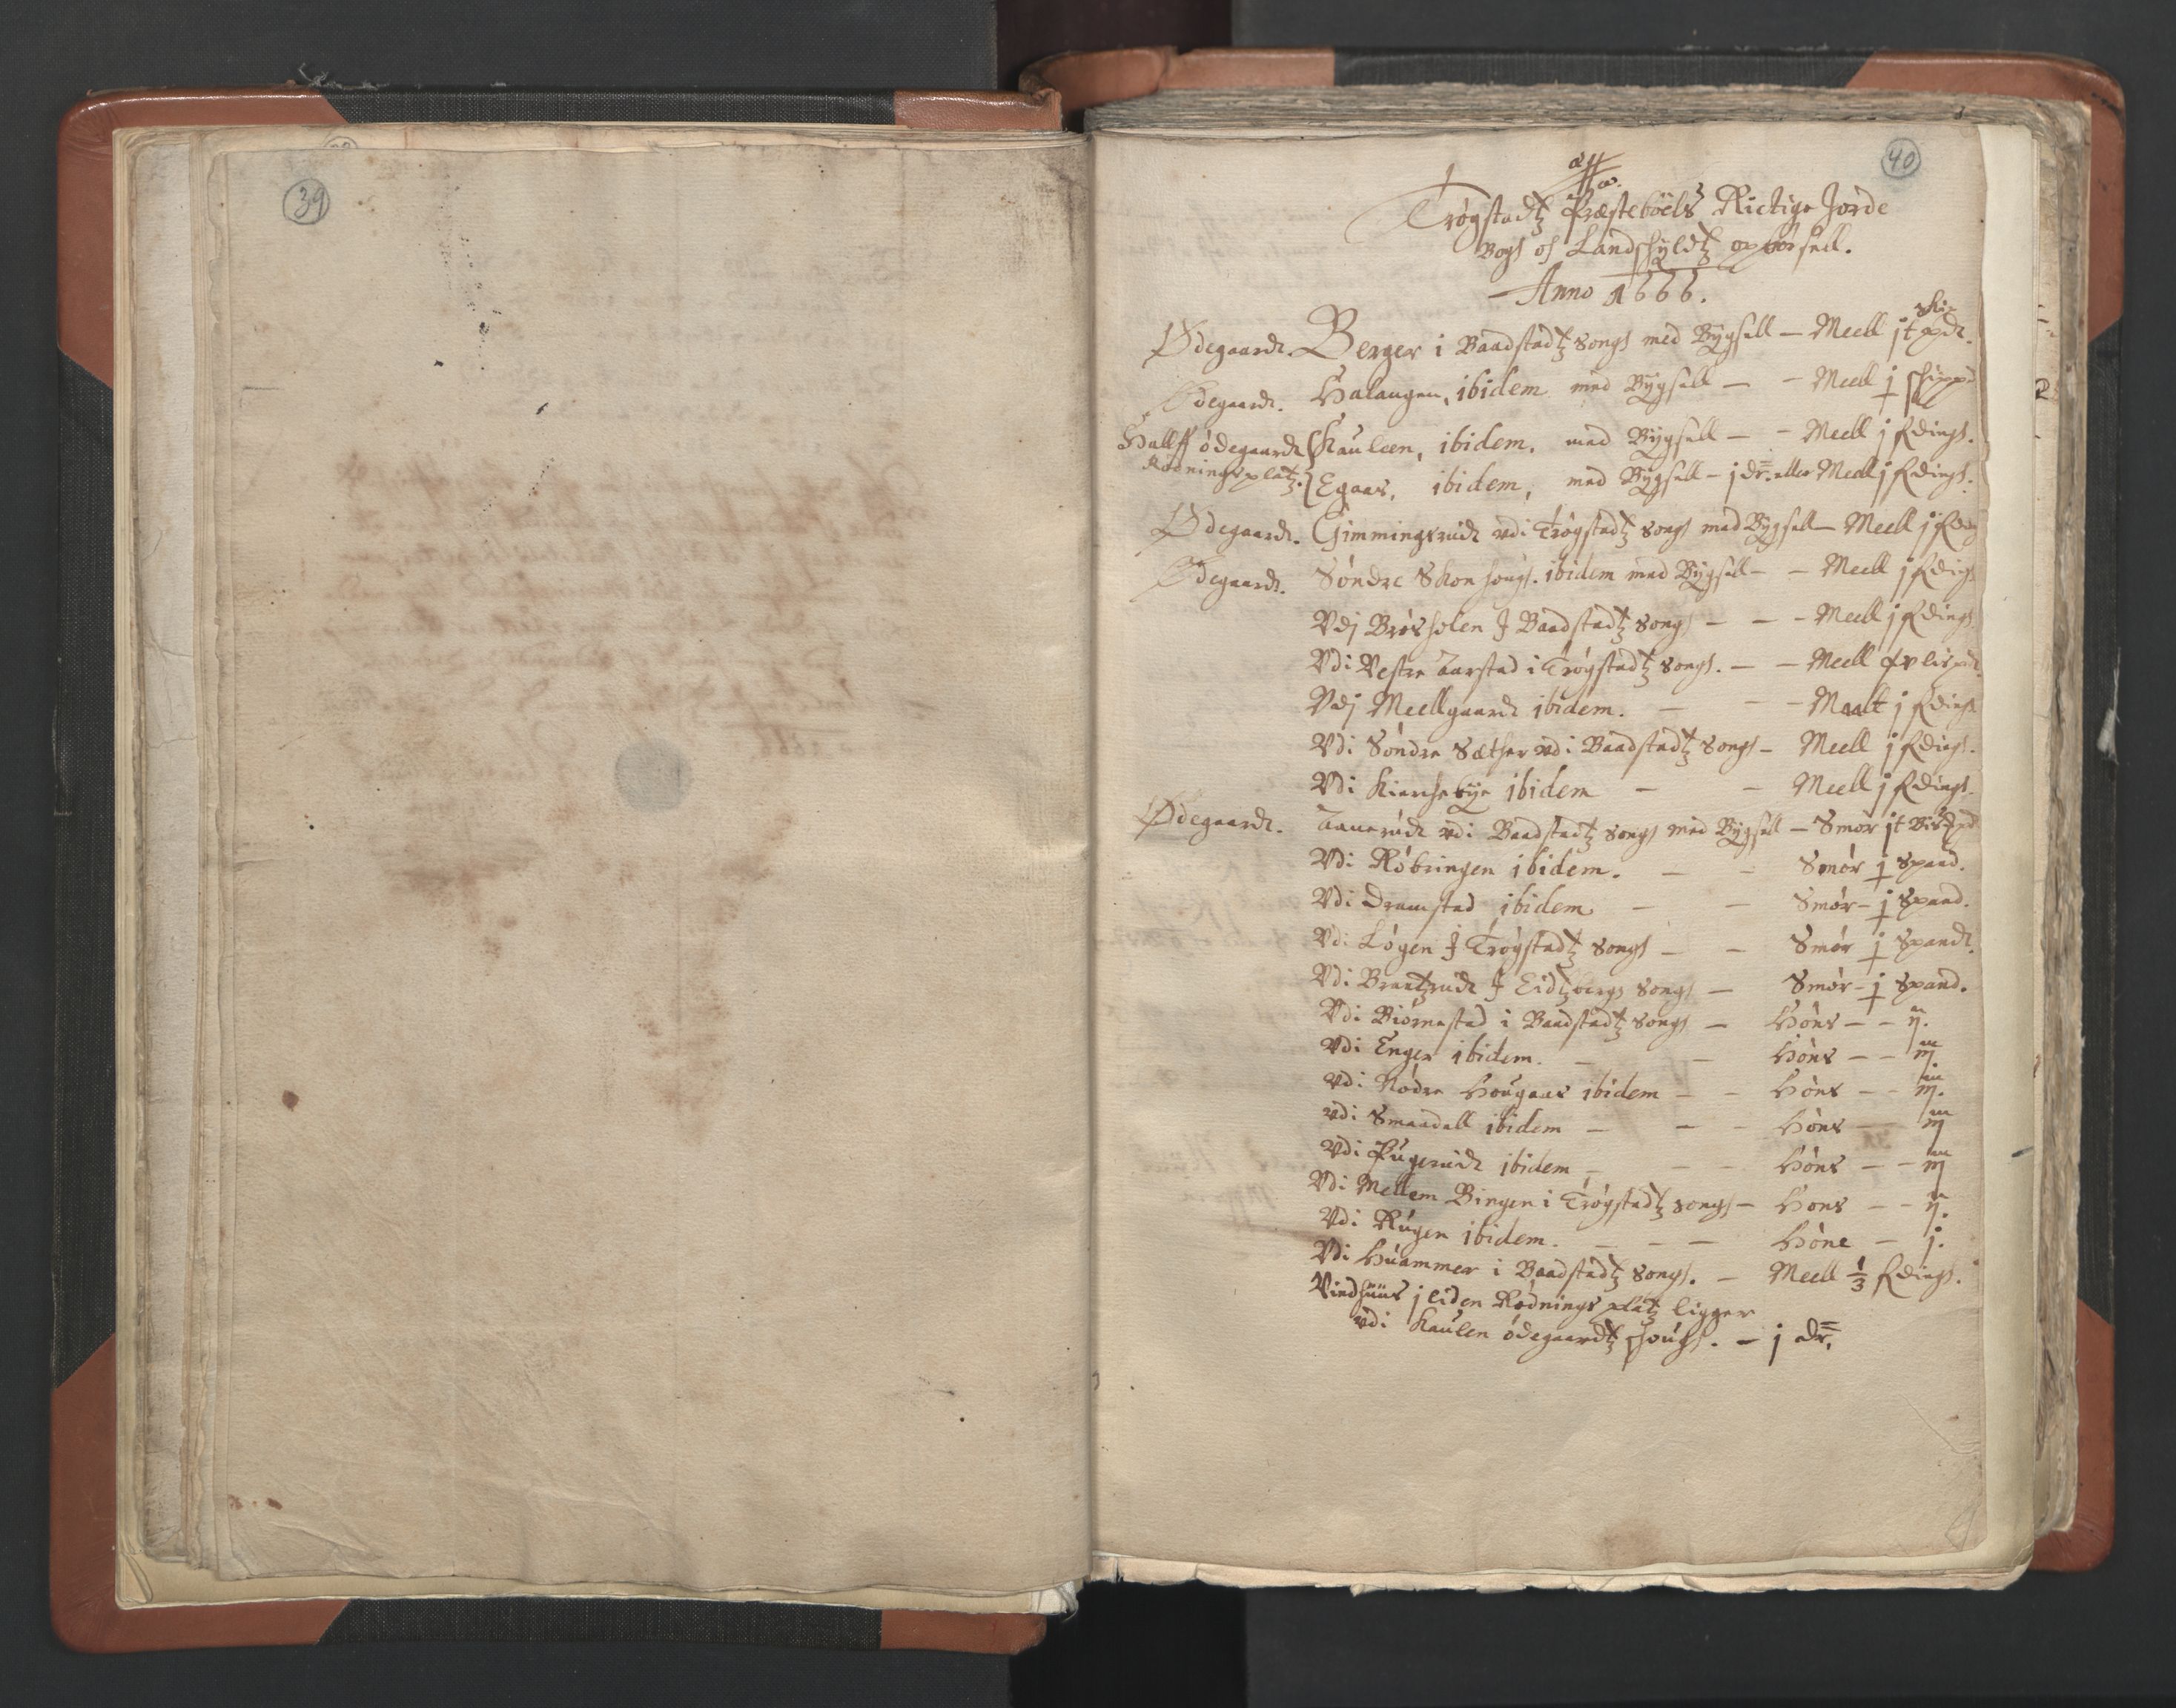 39
40
Trøgstadtz Præsteboels Rictige Jorde
Bog of Landschyldtz opbørsell.
Anno 1666.
Ødegaardt. Berger i Baadstadtz Sogn med Bygsell — Meell jt Ski-pdt.
Ødegaardt. Halangen, ibidem med Bygsell — — Meell j schippd
Hallff ødegaardt Kauleen, ibidem. med Bygsell — — Meell j fding.
Rødningsplatz. Egaas, ibidem, med Bygsell — j dr. eller Meell j fding.
Ødegaardt. Gimmingsrudt vdi Trøgstadtz Sogn med Bygsell — Meell j fding
Ødegaardt. Søndre Skonhoug. ibidem med Bygsell — — Meell j fding
Vdj Brøsholen J Baadstadtz Sogn — — — Meell j fding
Vdi Vestre Taarstad i Trøgstadtz Sogn. — — Meell v lispd.
Vdj Meellgaardt ibidem. — — — Maalt j fding
Vdi Søndre Sæther vdi Baadstadtz Sogn — Meell j fding.
Vdi Kierchebye ibidem — — Meell j fding.
Ødegaardt. Taaerudt vdi Baadstadtz Sogn med Bygsell — Smør jt Bispd
Vdi Røbringen ibidem. — — Smør j Spand.
Vdi Dramstad ibidem — — Smør — j Spand.
Vdi Løgen J Trøgstadtz Sogn — — Smør j Spandt.
Vdi Brautzrudt J Eidtzbergs Sogn — Smør — j Spand.
Vdi Biørnestad i Baadstadtz Sogn — Høns — — ij.
Vdi Enger ibidem. — — Høns — — iij.
Vdi Nødre Hougaas ibidem — — Høns — — iij.
Vdi Smaadall ibidem — — — Høns — — iij
Vdi Fugerudt ibidem — — — Høns — — iij
Vdi Mellem Bingen i Trøgstadtz Sogn — Høns — — ij.
Vdi Rugen ibidem. — — — Høne — j.
Vdi Huammer i Baadstadtz Sogn. — Meell 1/3 fding.
Vindhuus j liden Rødnings platz ligger
vdi Kaulen ødegaardtz schough. — j dr.